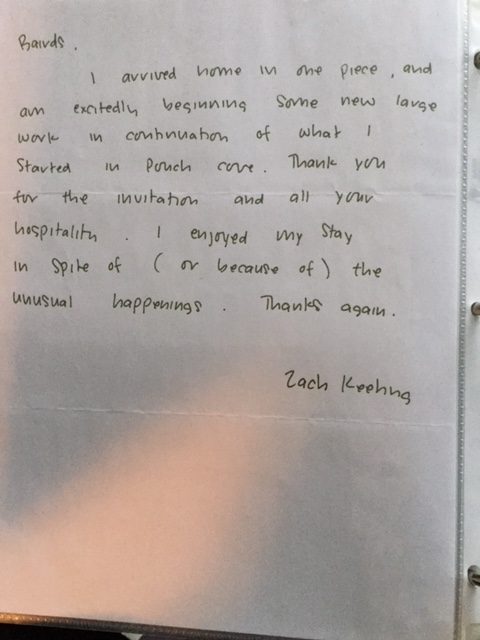 Bairds.
I arrived home in one piece, and
am excitedly beginning some new large
work in continuation of what I
Started in Pouch cove. Thank you
for the invitation and all your
hospitality. I enjoyed my stay
in spite of (or because of) the
unusual happenings. Thanks again.
Zach Keeting